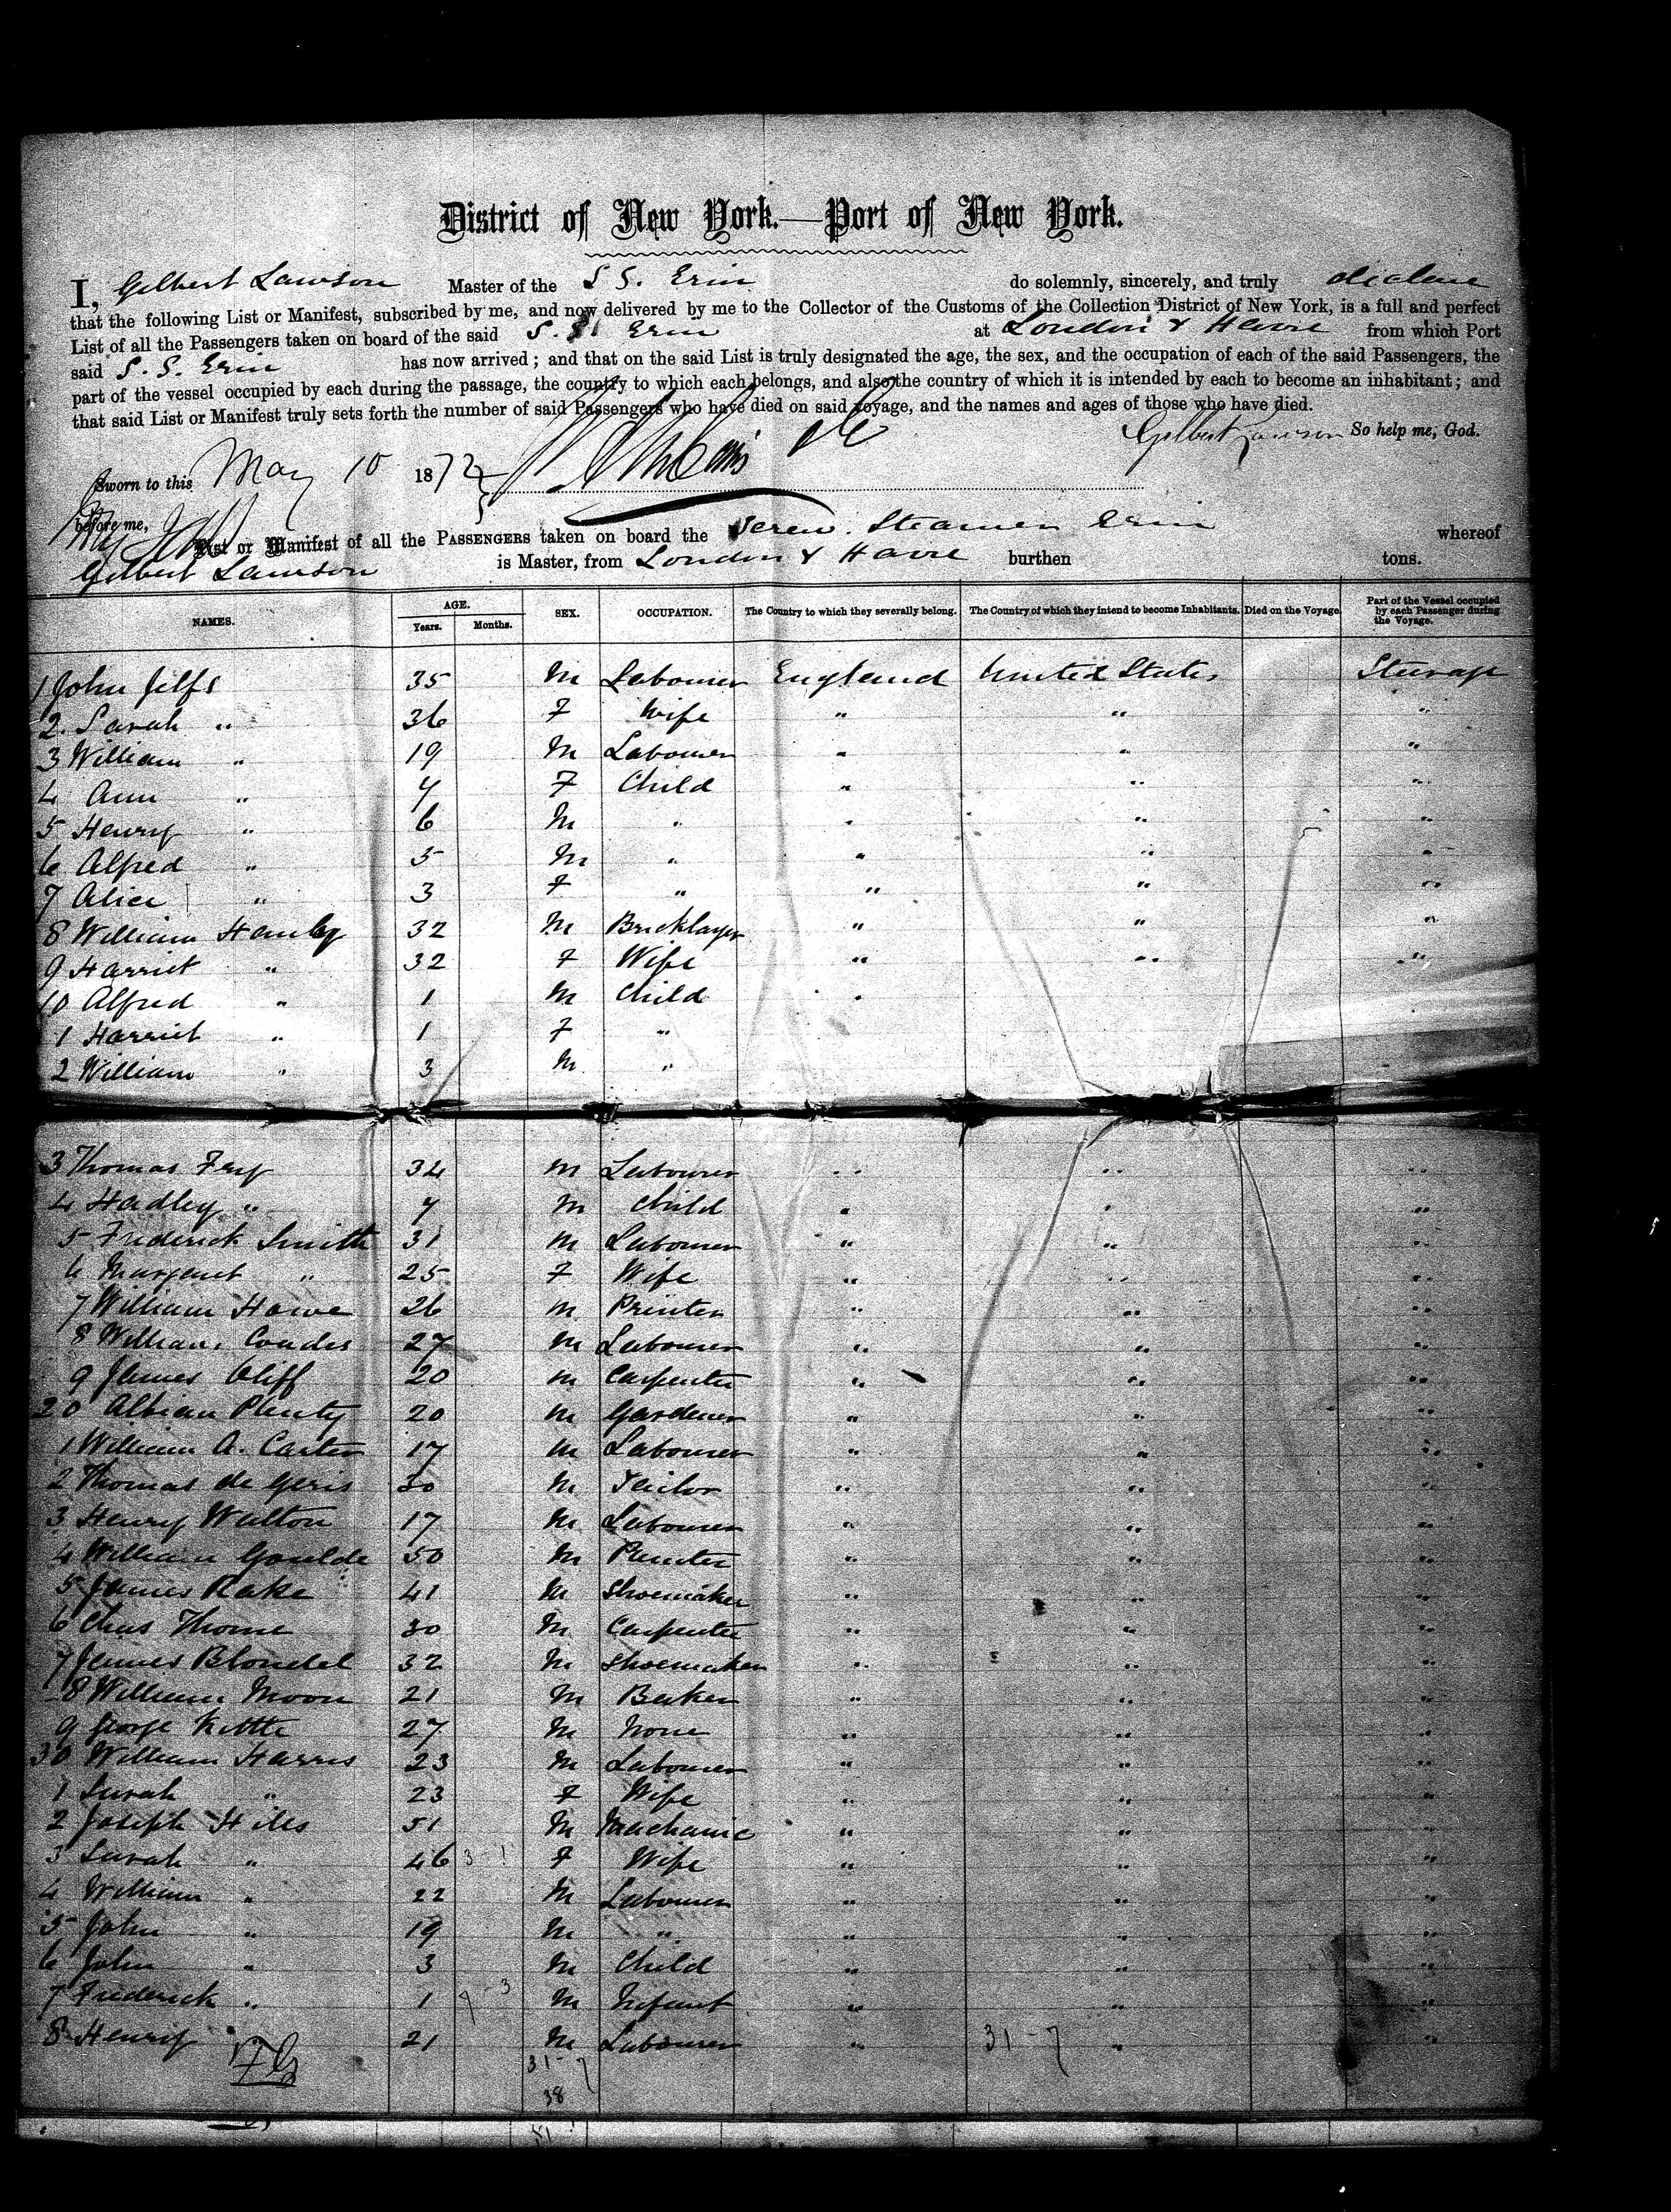 District of New York.—Port of New York.
I, Gilbert Lawson Master of the S S. Erin do solemnly, sincerely, and truly declare
that the following List or Manifest, subscribed by me, and now delivered by me to the Collector of the Customs of the Collection District of New York, is a full and perfect
List of all the Passengers taken on board of the said S. S. Erin at London & Havre from which Port
said S. S. Erin has now arrived; and that on the said List is truly designated the age, the sex, and the occupation of each of the said Passengers, the
part of the vessel occupied by each during the passage, the country to which each belongs, and also the country of which it is intended by each to become an inhabitant; and
that said List or Manifest truly sets forth the number of said Passengers who have died on said voyage, and the names and ages of those who have died.
Gilbert Lawson So help me, God.
Sworn to this May 10 1872
before me,
List or Manifest of all the PASSENGERS taken on board the Screw Steamer Erin whereof
Gilbert Lawson is Master, from London & Havre burthen tons.
NAMES. AGE. Years. Months. SEX. OCCUPATION. The Country to which they severally belong. The Country of which they intend to become Inhabitants. Died on the Voyage. Part of the Vessel occupied by each Passenger during the Voyage.
1 John Jelfs 35 M Labourer England United States Steerage
2. Sarah " 36 F Wife " " "
3 William " 19 M Labourer " " "
4 Ann " 7 F Child " " "
5 Henry " 6 M " " " "
6 Alfred " 5 M " " " "
7 Alice " 3 F " " " "
8 William Hanby 32 M Bricklayer " " "
9 Harriet " 32 F Wife " " "
10 Alfred " 1 M Child "
1 Harriet " 1 F "
2 William " 3 M "
3 Thomas Fry 34 M Labourer " " "
4 Hadley " 7 M Child " " "
5 Frederick Smith 31 M Labourer " " "
6 Margaret " 25 F Wife " " "
7 William Howe 26 M Printer " " "
8 William 27 M Labourer " " "
9 James Oliff 20 M Carpenter " " "
20 Albian Plenty 20 M Gardener " " "
1 William A. Carter 17 M Labourer " " "
2 Thomas de Geris 30 M Tailor " " "
3 Henry Walton 17 M Labourer " " "
4 William Goulde 50 M " " "
5 James Rake 41 M Shoemaker " " "
6 Chas Thorne 30 M Carpenter " " "
7 James Blondel 32 M Shoemaker " " "
8 William Moon 21 M Baker " " "
9 George Kettle 27 M None " " "
30 William Harris 23 M Labourer " " "
1 Sarah " 23 F Wife " " "
2 Joseph Hills 51 M Machanic " " "
3 Sarah " 46 F Wife " " "
4 William " 22 M Labourer " " "
5 John " 19 M " " " "
6 John " 3 M Child " " "
7 Frederick " 1 M Infant " " "
8 Henry " 21 M Labourer " 31-7 " "
31-7
38